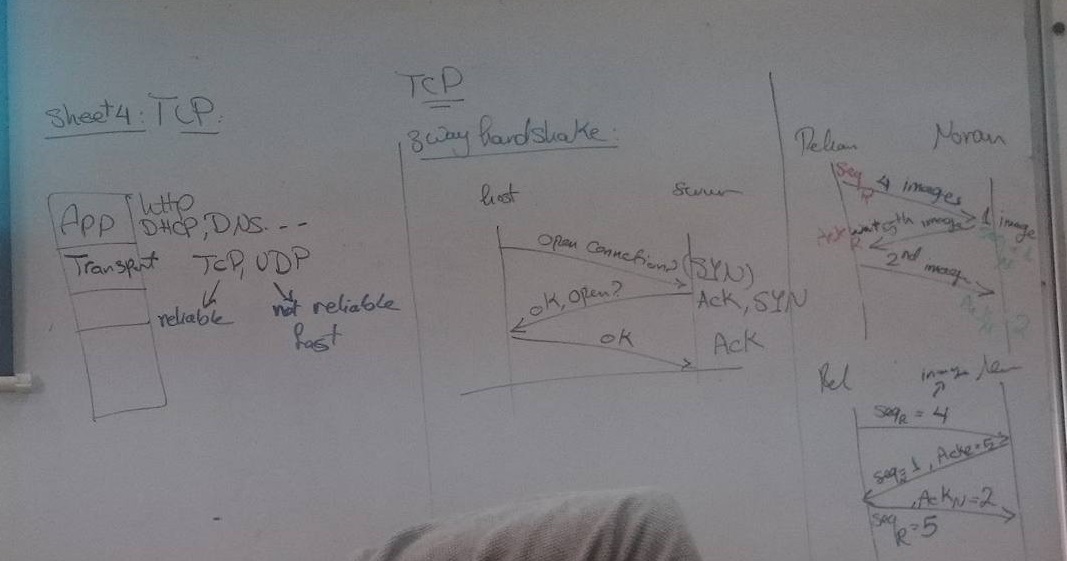 Sheet 4: TCP:
App
HTTP
DHCP, DNS. ---
Transport TCP, UDP
reliable
not reliable
fast
TCP
3way handshake:
host
Open Connection? (SYN)
OK, Open?
Ack, SYN
OK
Ack
Noran
Seq
4 images
1 image
want 5th image
2nd image
image
SeqR = 4
Seq=1, AckR=5
, AckN=2
SeqR=5